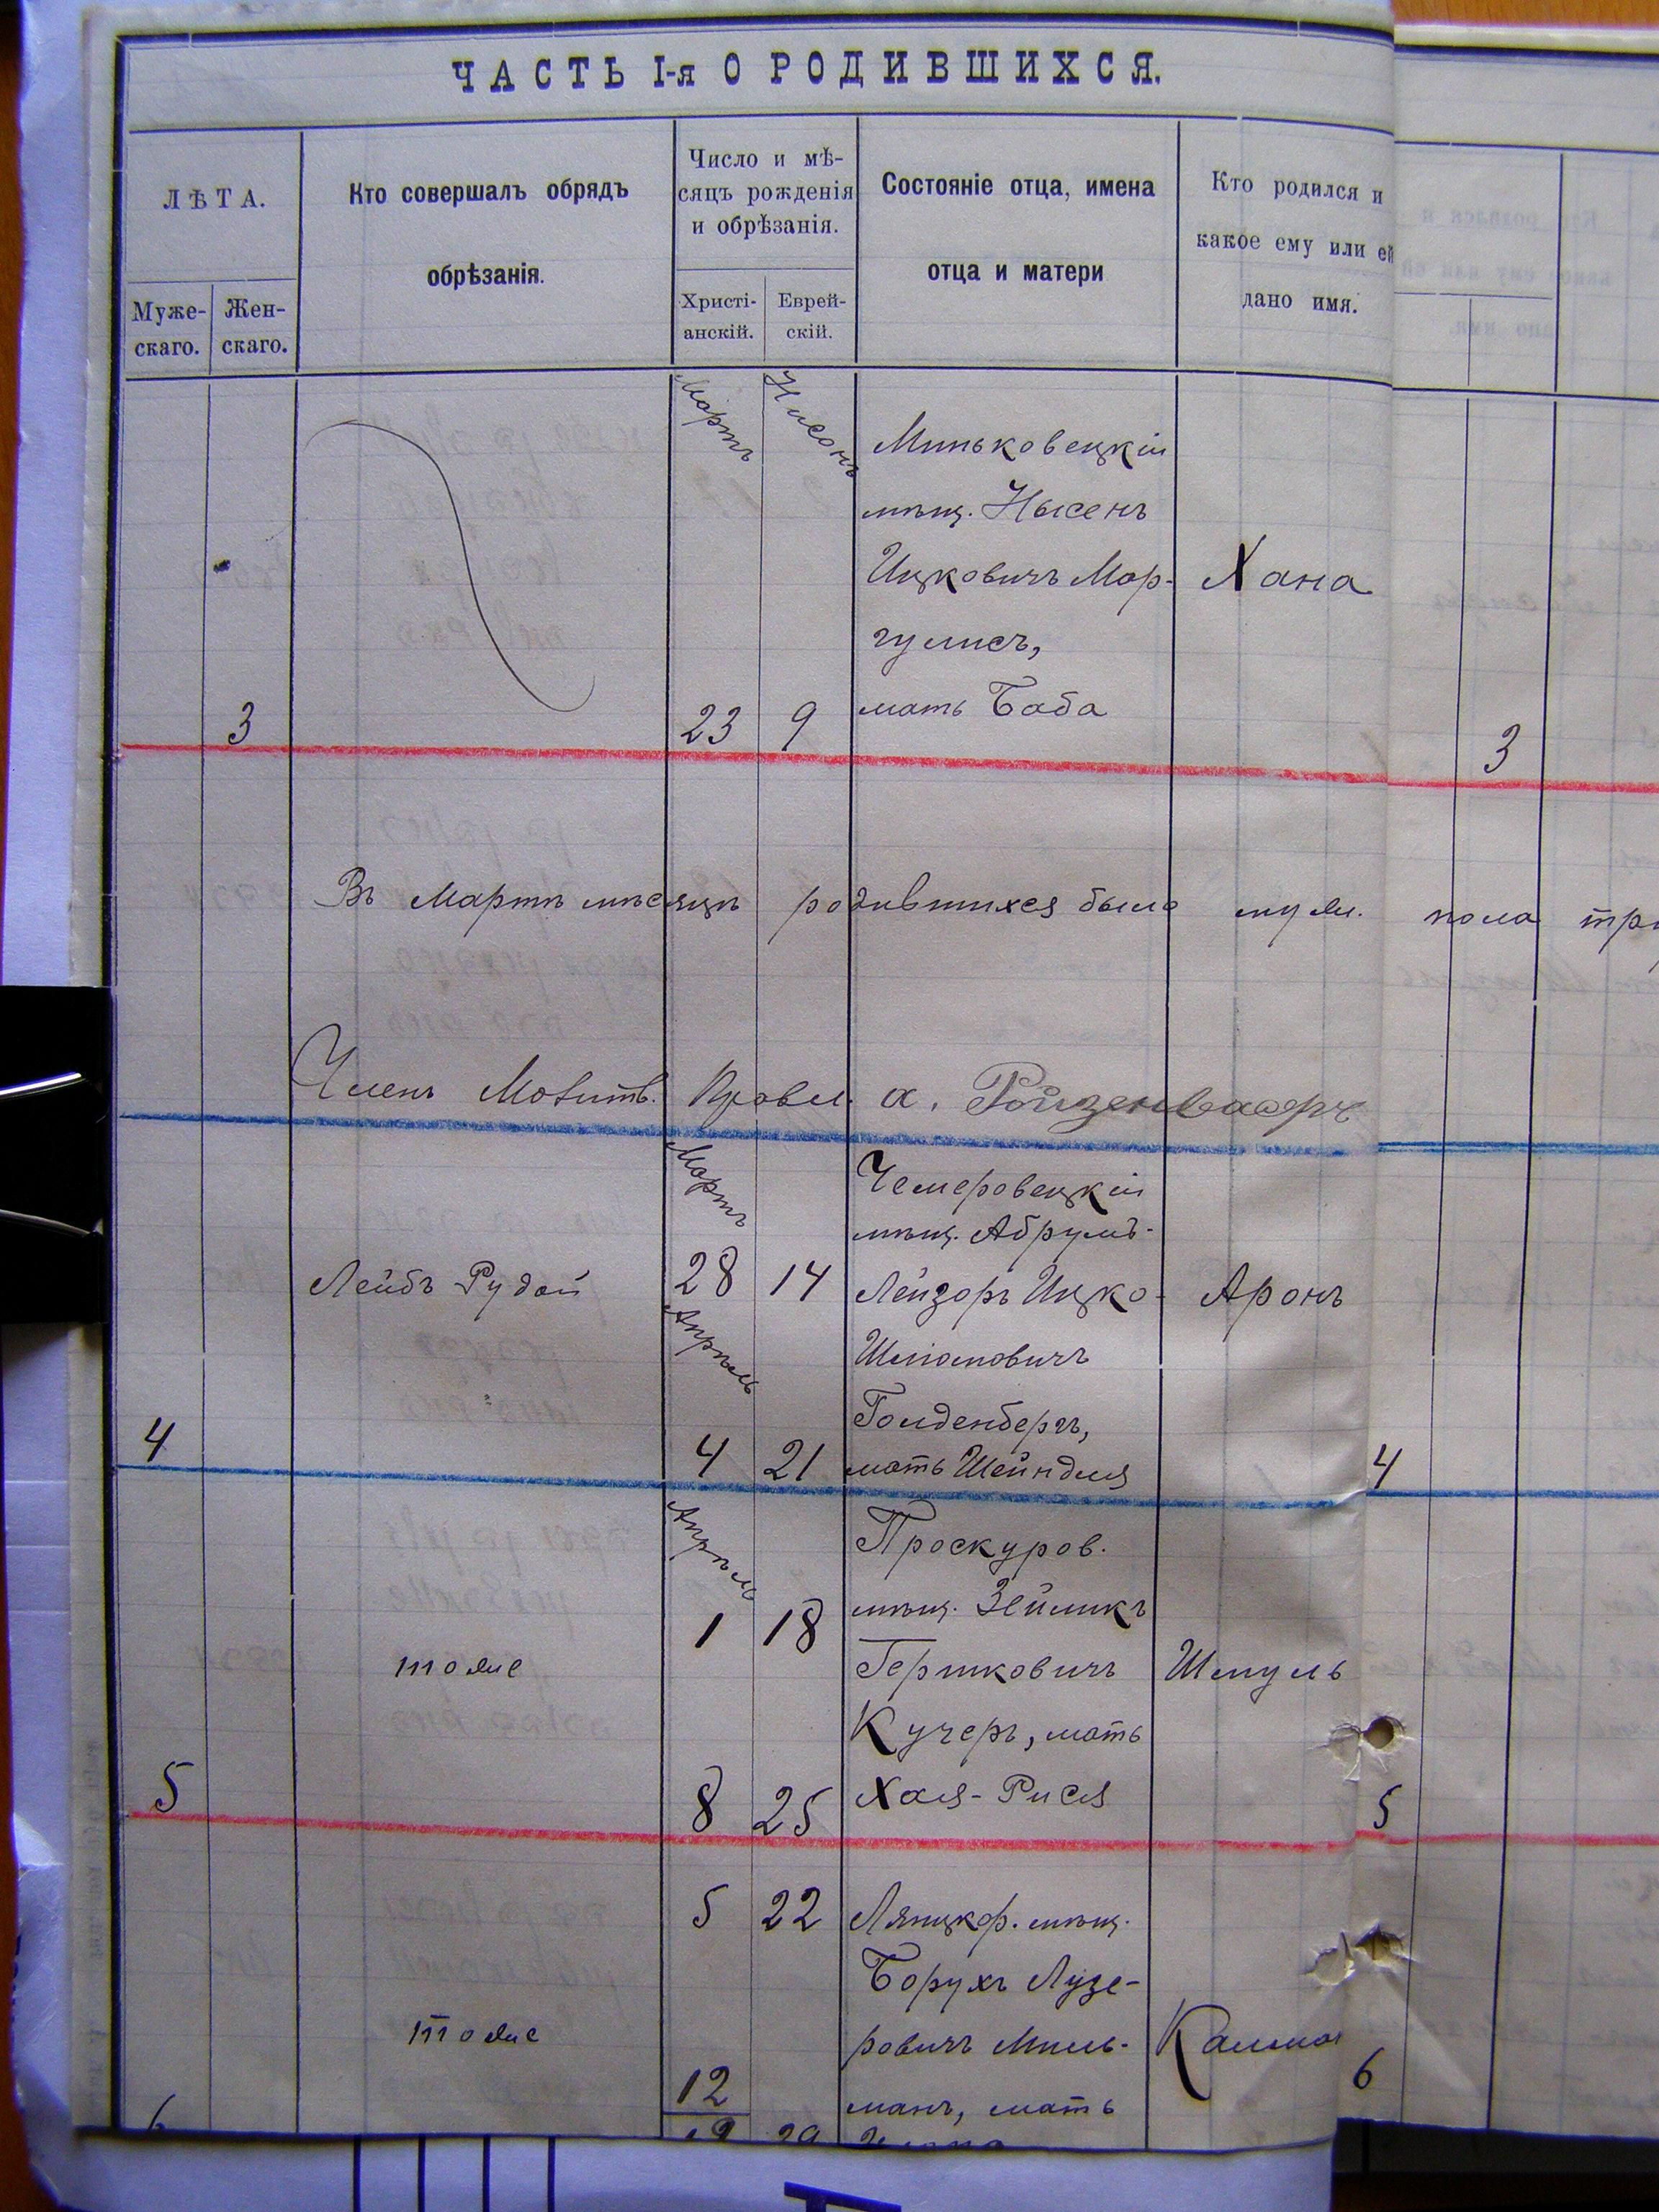 ЧАСТЬ I-я О РОДИВШИХСЯ.
ЛѢТА.
Муже-
скаго.
Жен-
скаго.
Кто совершалъ обрядъ
обрѣзанія.
Число и мѣ-
сяцъ рожденія
и обрѣзанія.
Христі-
анскій.
Еврей-
скій.
Состояніе отца, имена
отца и матери
Кто родился и
какое ему или ей
дано имя.
Мартъ
Нисонъ
Миньковецкій
мѣщ. Нысенъ
Ицковичъ Мар-
гулисъ,
мать Баба
Хана
3
23
9
3
Въ Мартѣ мѣсяцѣ родившихся было муж. пола
Членъ Молитв. Правл. А. Ройзенвасеръ
Мартъ
28
14
Апрѣль
4
21
Лейбъ Рудой
Чемеровецкій
мѣщ. Абрумъ-
Лейзоръ Ицко-
Шліомовичъ
Голденбергъ,
мать Шейндля
Аронъ
4
4
Апрѣль
1
18
8
25
тоже
Проскуров.
мѣщ. Зейликъ
Гершковичъ
Кучеръ, мать
Хая-Рися
Шмуль
5
5
5
22
12
тоже
Ляцкор. мѣщ.
Борухъ Лузе-
ровичъ Миль-
манъ, мать
6
29
6